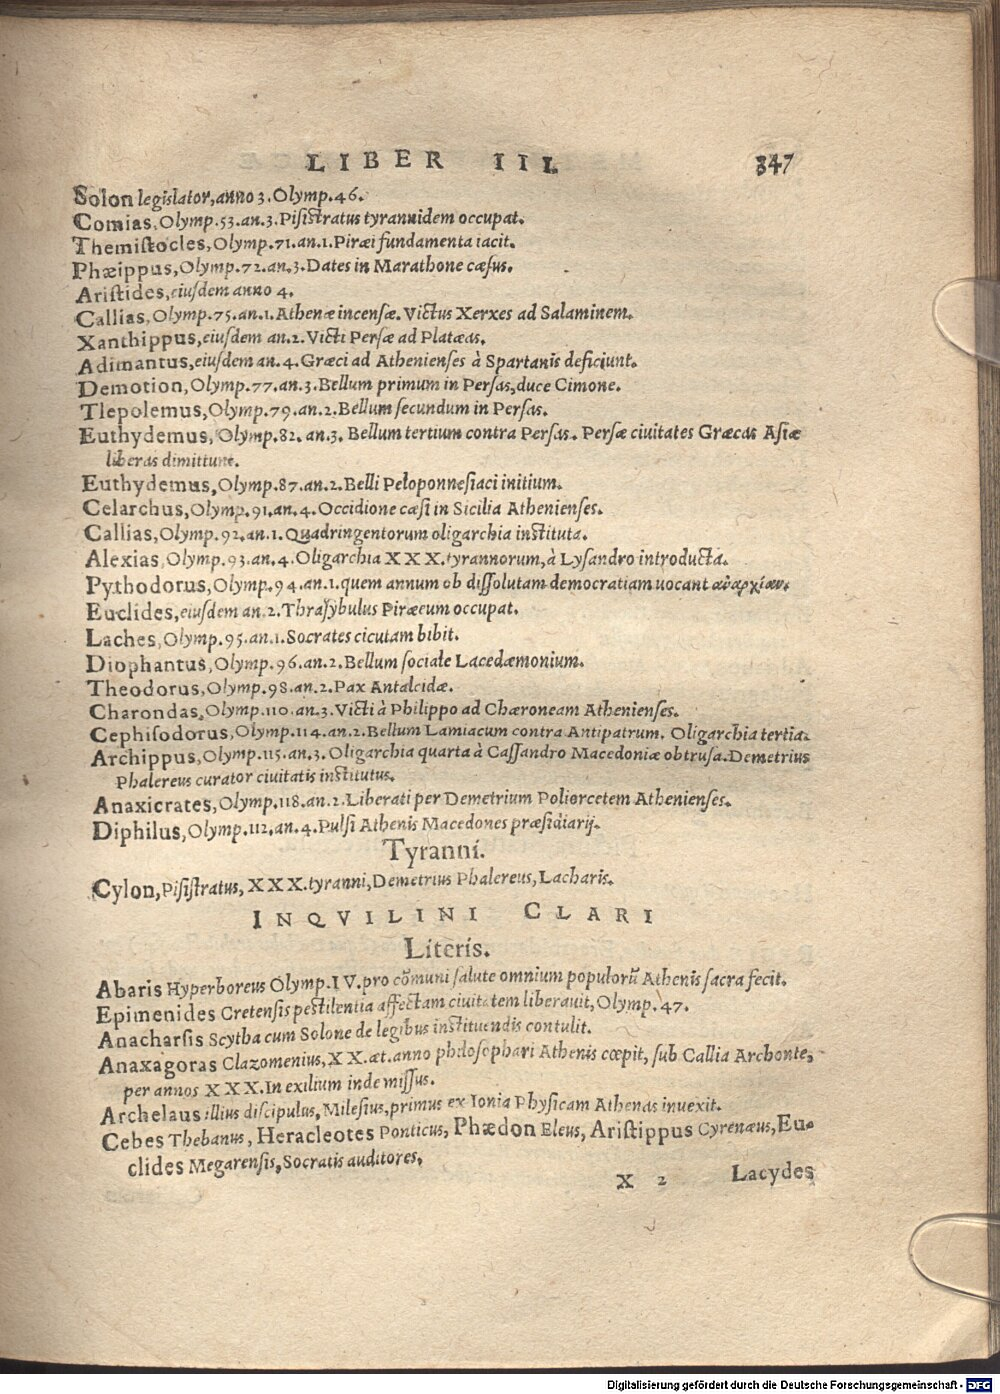 LIBER III. 347
Solon legislator, anno 3. Olymp. 46.
Comias, Olymp. 53. an. 3. Pisistratus tyrannidem occupat.
Themistocles, Olymp. 71. an. 1. Piræi fundamenta iacit.
Phæippus, Olymp. 72. an. 3. Dates in Marathone cæsus.
Aristides, eiusdem anno 4.
Callias, Olymp. 75. an. 1. Athenæ incensæ. Victus Xerxes ad Salaminem.
Xanthippus, eiusdem an. 2. Victi Persæ ad Platæas.
Adimantus, eiusdem an. 4. Græci ad Athenienses à Spartanis deficiunt.
Demotion, Olymp. 77. an. 3. Bellum primum in Persas, duce Cimone.
Tlepolemus, Olymp. 79. an. 2. Bellum secundum in Persas.
Euthydemus, Olymp. 82. an. 3. Bellum tertium contra Persas. Persæ ciuitates Græcas Asiæ
liberas dimittunt.
Euthydemus, Olymp. 87. an. 2. Belli Peloponnesiaci initium.
Celarchus, Olymp. 91. an. 4. Occidione cæsi in Sicilia Athenienses.
Callias, Olymp. 92. an. 1. Quadringentorum oligarchia instituta.
Alexias, Olymp. 93. an. 4. Oligarchia XXX. tyrannorum, à Lysandro introducta.
Pythodorus, Olymp. 94. an. 1. quem annum ob dissolutam democratiam uocant ἀναρχίαν.
Euclides, eiusdem an. 2. Thrasybulus Piræeum occupat.
Laches, Olymp. 95. an. 1. Socrates cicutam bibit.
Diophantus, Olymp. 96. an. 2. Bellum sociale Lacedæmonium.
Theodorus, Olymp. 98. an. 2. Pax Antalcidæ.
Charondas, Olymp. 110. an. 3. Victi à Philippo ad Chæroneam Athenienses.
Cephisodorus, Olymp. 114. an. 2. Bellum Lamiacum contra Antipatrum. Oligarchia tertia.
Archippus, Olymp. 115. an. 3. Oligarchia quarta à Cassandro Macedoniæ obtrusa. Demetrius
Phalereus curator ciuitatis institutus.
Anaxicrates, Olymp. 118. an. 2. Liberati per Demetrium Poliorcetem Athenienses.
Diphilus, Olymp. 112. an. 4. Pulsi Athenis Macedones præsidiarij.
Tyranni.
Cylon, Pisistratus, XXX. tyranni, Demetrius Phalereus, Lacharis.
INQVILINI CLARI
Literis.
Abaris Hyperboreus Olymp. IV. pro cõmuni salute omnium populorũ Athenis sacra fecit.
Epimenides Cretensis pestilentia affectam ciuitatem liberauit, Olymp. 47.
Anacharsis Scytha cum Solone de legibus instituendis contulit.
Anaxagoras Clazomenius, XX. æt. anno philosophari Athenis cœpit, sub Callia Archonte,
per annos XXX. In exilium inde missus.
Archelaus illius discipulus, Milesius, primus ex Ionia Physicam Athenas inuexit.
Cebes Thebanus, Heracleotes Ponticus, Phædon Eleus, Aristippus Cyrenæus, Eu-
clides Megarensis, Socratis auditores.
X 2 Lacydes
Digitalisierung gefördert durch die Deutsche Forschungsgemeinschaft - DFG